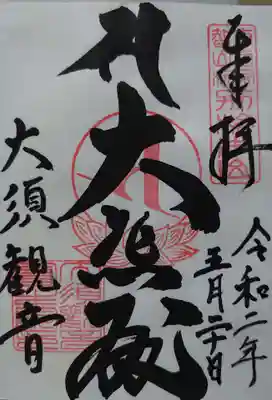 奉拝
令和二年
五月二十日
大悲殿
大須觀音